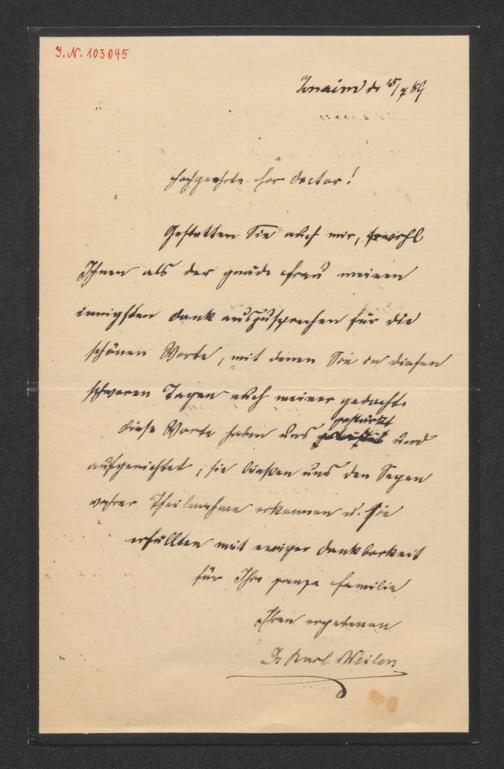 J. N. 103045
Znaim d. 15/7 84
Hochgeehrter Herr Doctor!
Gestatten Sie auch mir, sowohl
Ihnen als der gnäd. Frau meinen
innigsten Dank auszusprechen für die
schönen Worte, mit denen Sie in diesen
schweren Tagen auch meiner gedacht.
gestärkt
Diese Worte haben uns und
aufgerichtet, sie ließen uns den Segen
wahrer Theilnahme erkennen u. sie
erfüllten mit ewiger Dankbarkeit
für Ihre ganze Familie
Ihren ergebenen
Dr Karl Weiler